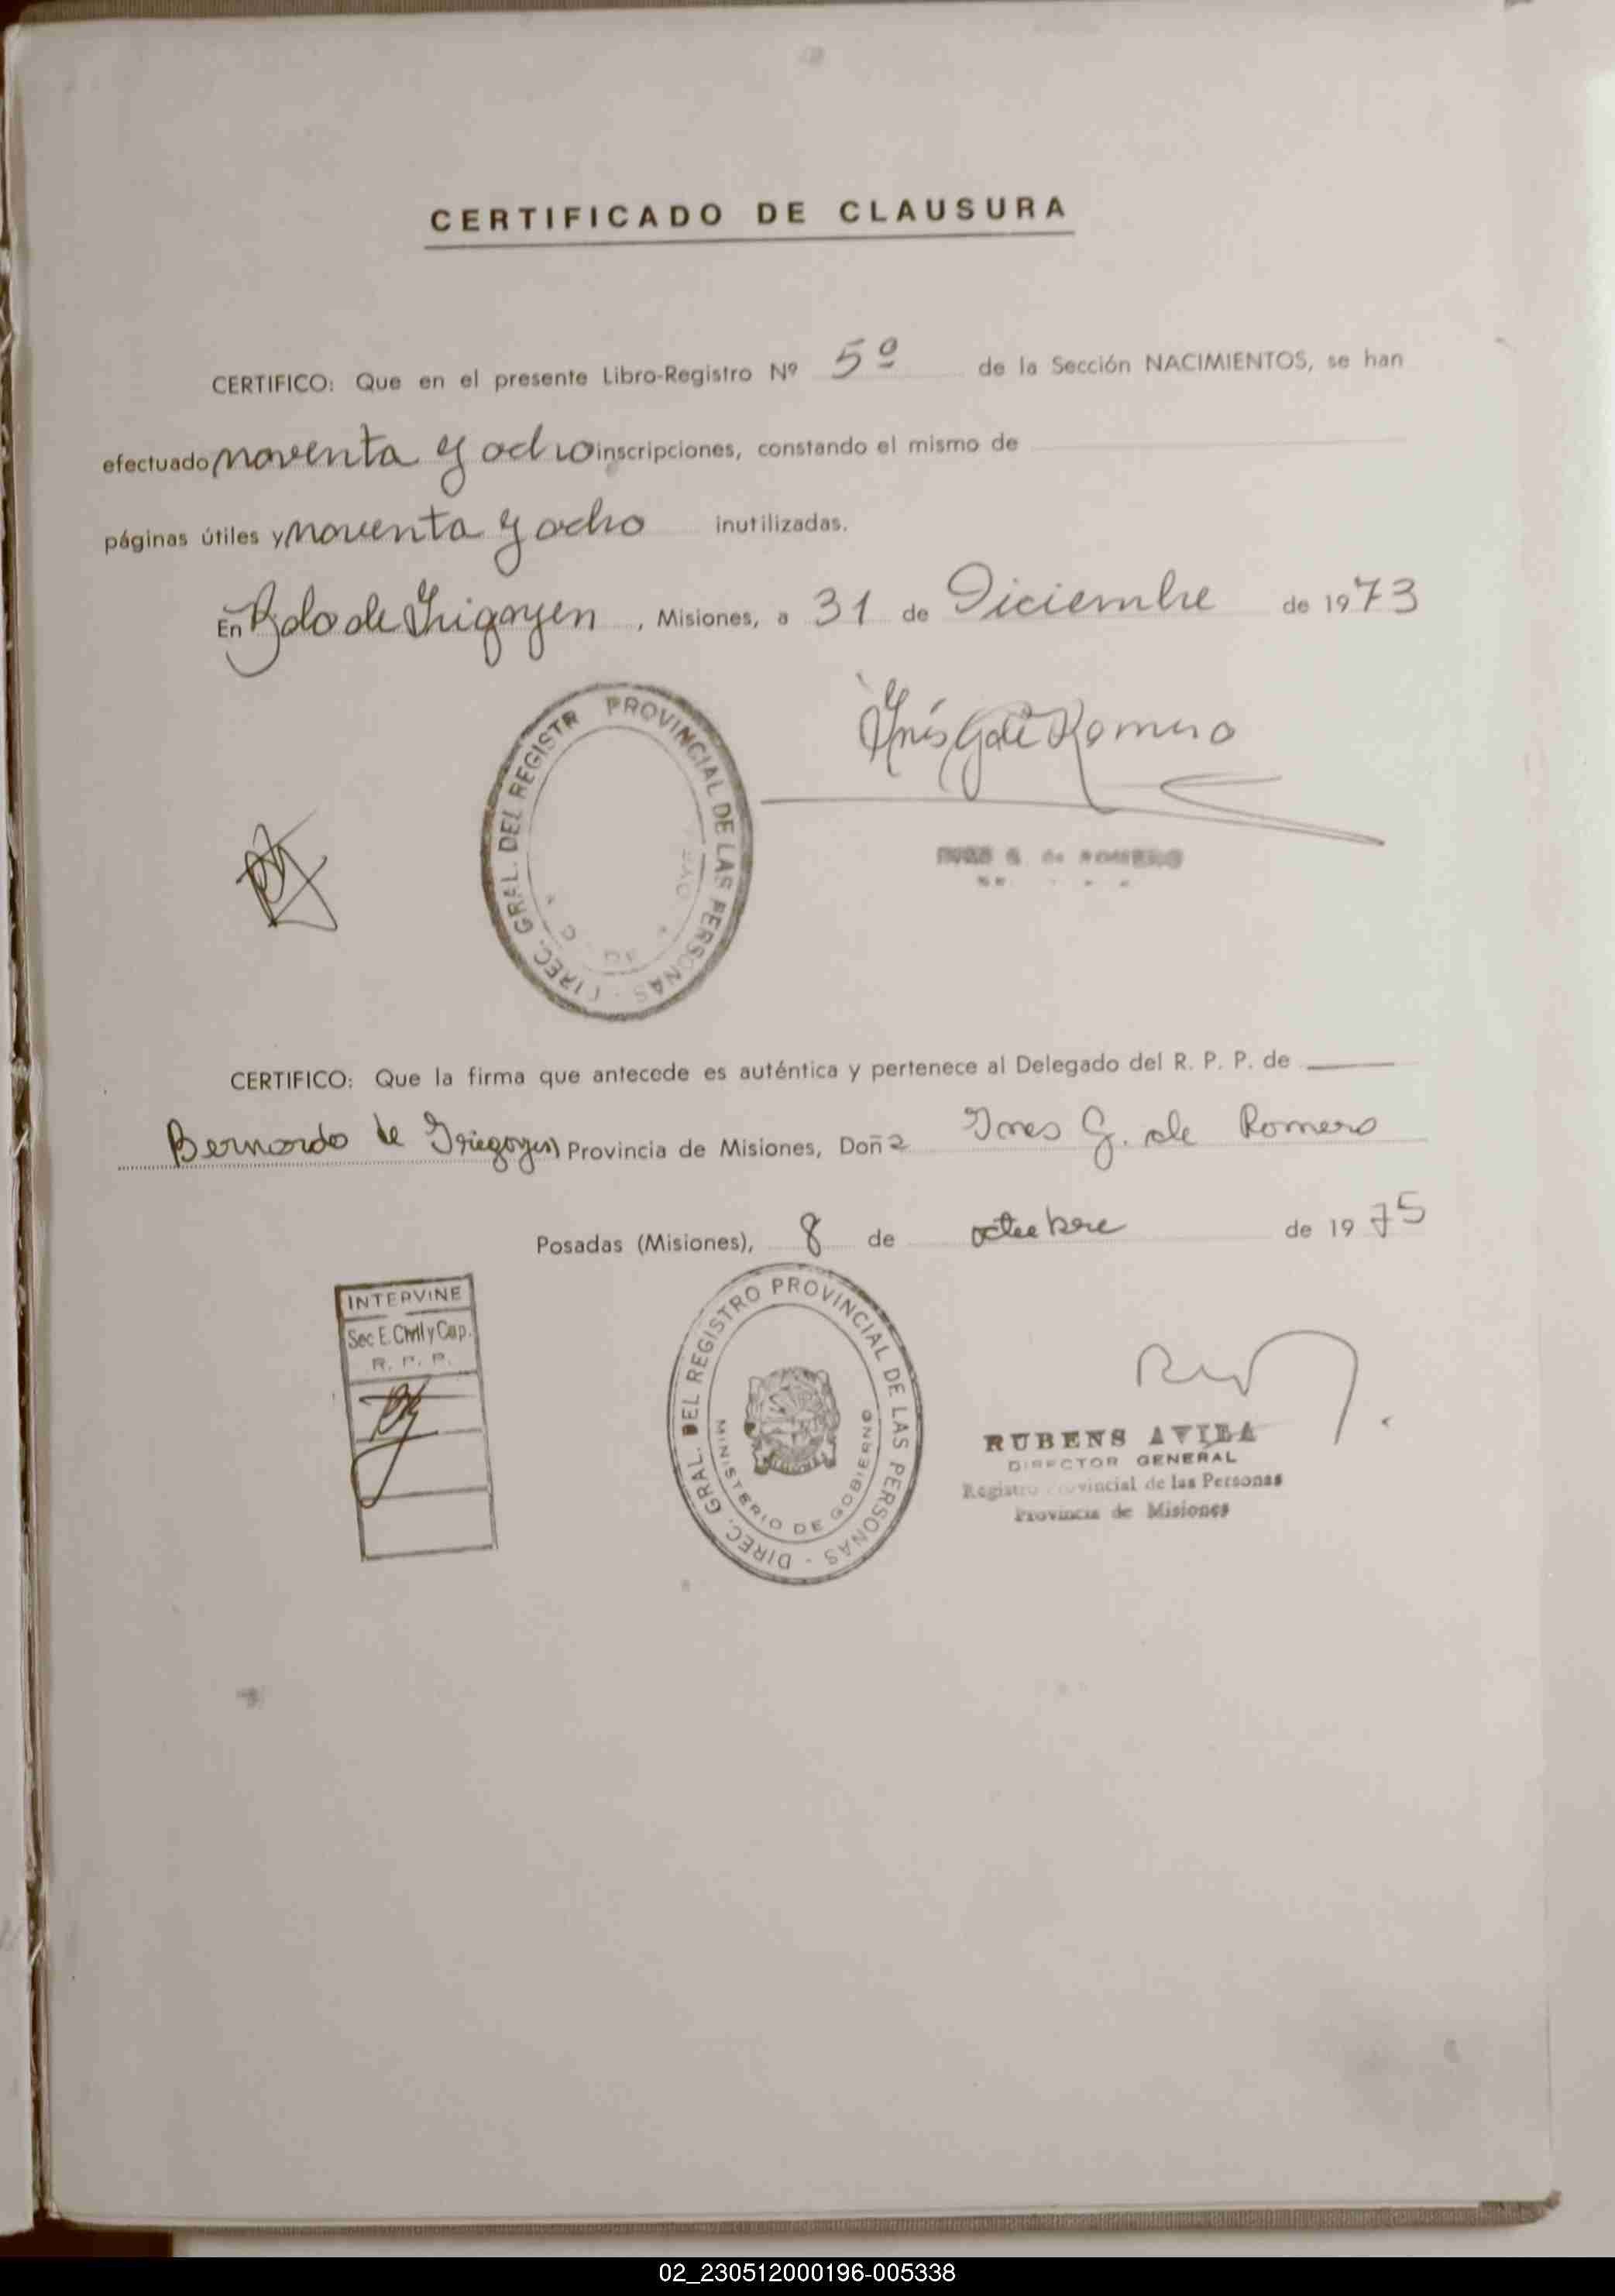 CERTIFICADO DE CLAUSURA
CERTIFICO: Que en el presente Libro-Registro Nº 5º de la Sección NACIMIENTOS, se han
efectuado noventa y ocho inscripciones, constando el mismo de
páginas útiles y noventa y ocho inutilizadas.
En Bdo de Irigoyen, Misiones, a 31 de Diciembre de 1973
DIREC. GRAL. DEL REGISTR PROVINCIAL DE LAS PERSONAS -
Inés G de Romero
de ROMERO
CERTIFICO: Que la firma que antecede es auténtica y pertenece al Delegado del R. P. P. de
Bernardo de Iriegoyen Provincia de Misiones, Doña Ines G. de Romero
Posadas (Misiones), 8 de octubre de 1975
INTERVINE
Sec E. Civil y Cap.
R. P. P.
DIREC. GRAL. DEL REGISTRO PROVINCIAL DE LAS PERSONAS -
MINISTERIO DE GOBIERNO
RUBENS AVILA
DIRECTOR GENERAL
Registro Provincial de las Personas
Provincia de Misiones
02_230512000196-005338